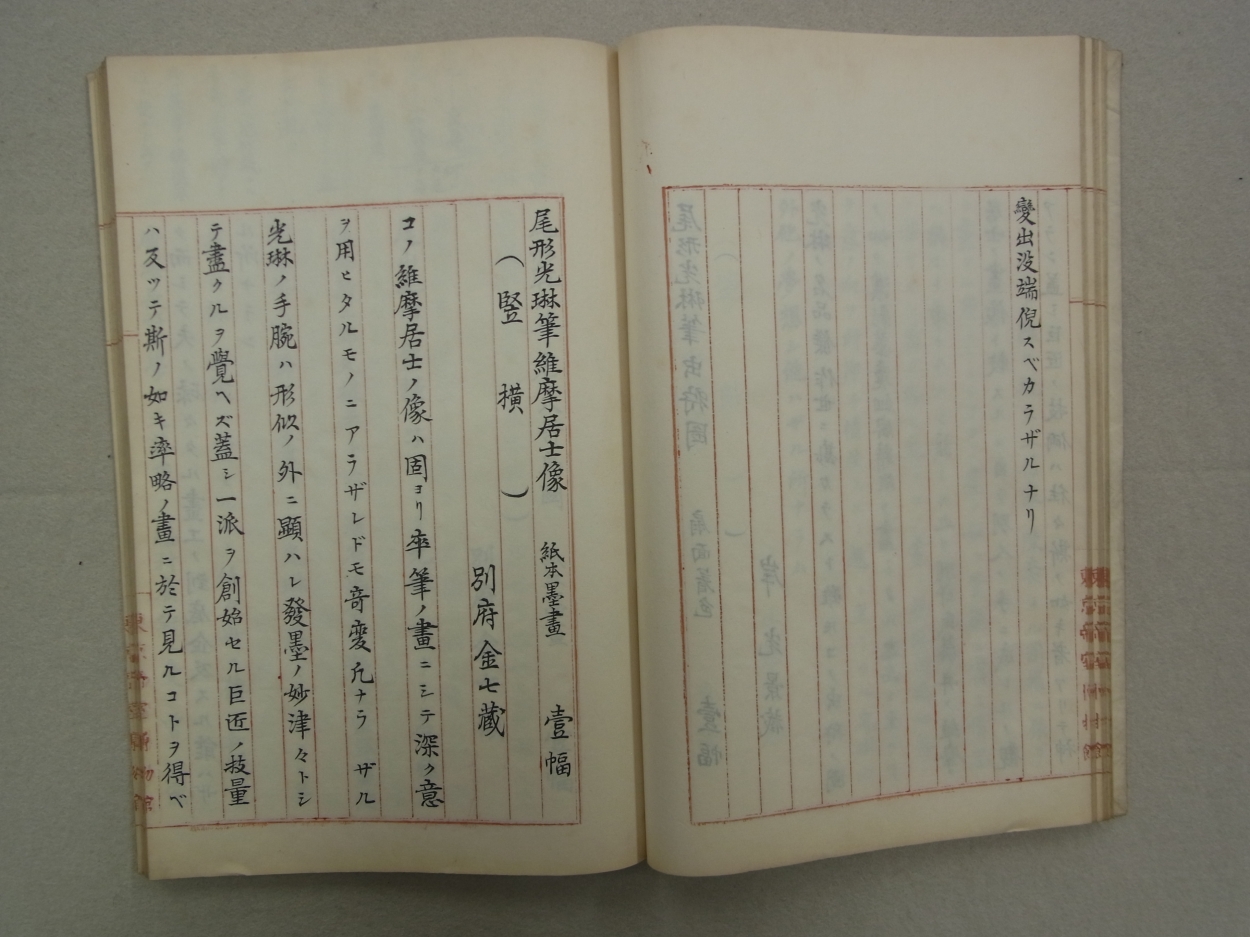 變出没端倪スベカラザルナリ
尾形光琳筆維摩居士像 紙本墨畫 壹幅
（竪 横 ）
別府金七蔵
コノ維摩居士ノ像ハ固ヨリ卒筆ノ畫ニシテ深ク意
ヲ用ヒタルモノニアラザレドモ奇変凡ナラザル
光琳ノ手腕ハ形似ノ外ニ顯ハレ發墨ノ妙津々トシ
テ盡クルヲ覺ヘズ蓋シ一派ヲ創始セル巨匠ノ技量
ハ反ツテ斯ノ如キ率略ノ畫ニ於テ見ルコトヲ得ベ